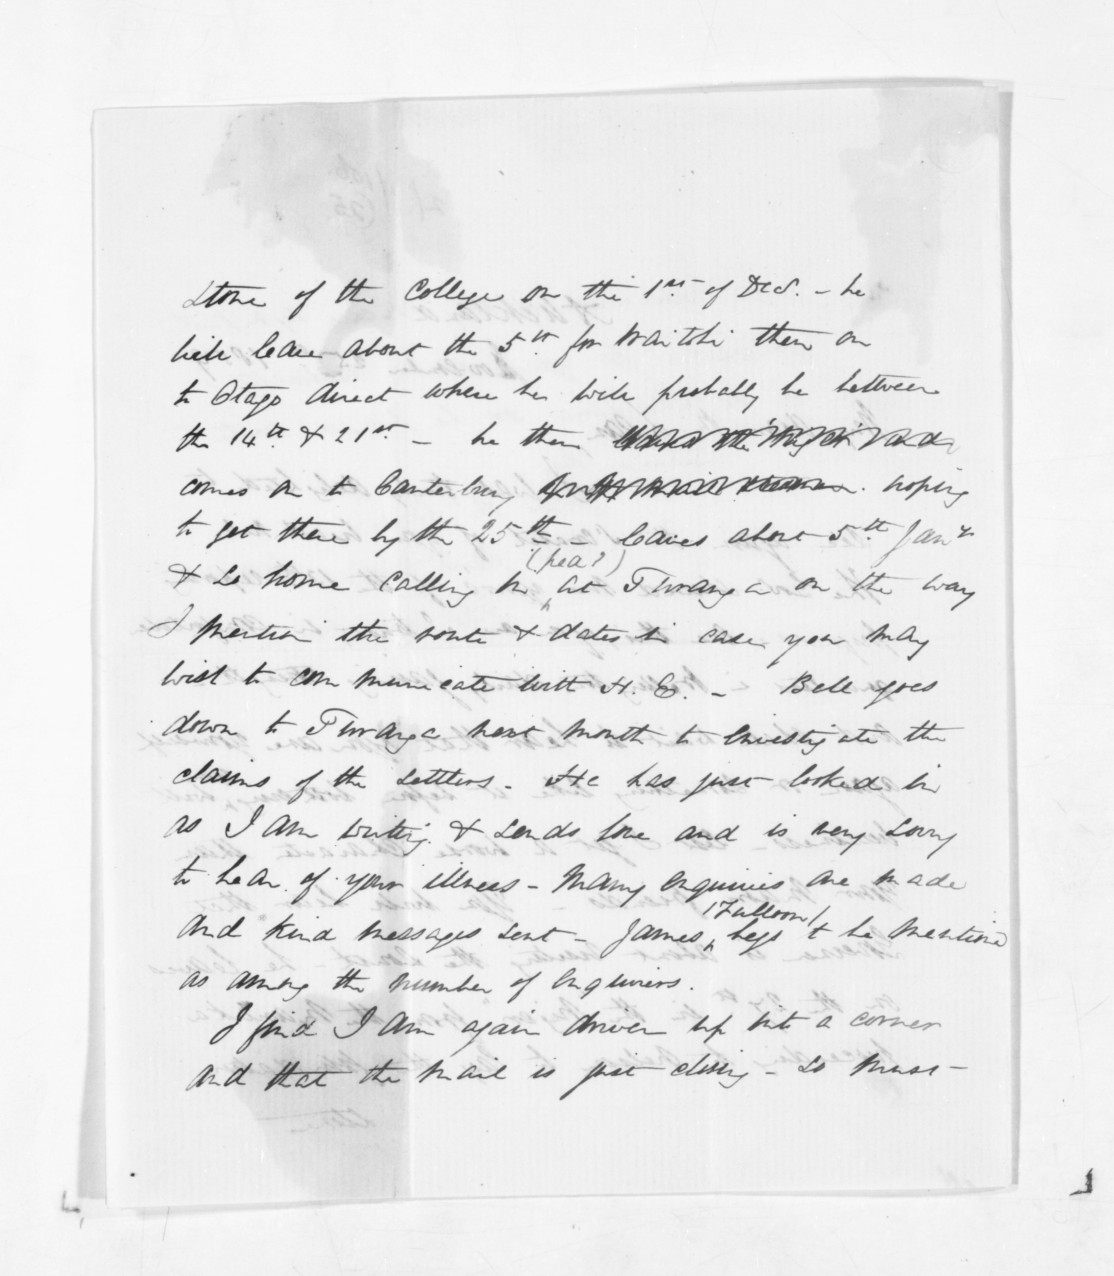 stone of the College on the 1st of Dec. - he
will leave about the 5th for Waitohi then on
to Otago direct where he will probably be between
the 14th & 21st - he then
comes on to Canterbury hoping
to get there by the 25th - leaves about 5th Jany
& so home calling in (hea?) at Turanga on the way
I mention the route & dates in case you may
wish to communicate with H. E. - Bell goes
down to Turanga next month to investigate the
claims of the settlers. He has just looked in
as I am writing & sends love and is very sorry
to hear of your illness - Many enquiries are made
and kind messages sent - James (Fulloon) begs to be mentioned
as among the number of enquirers.
I find I am again driven up into a corner
and that the mail is just closing - so must -